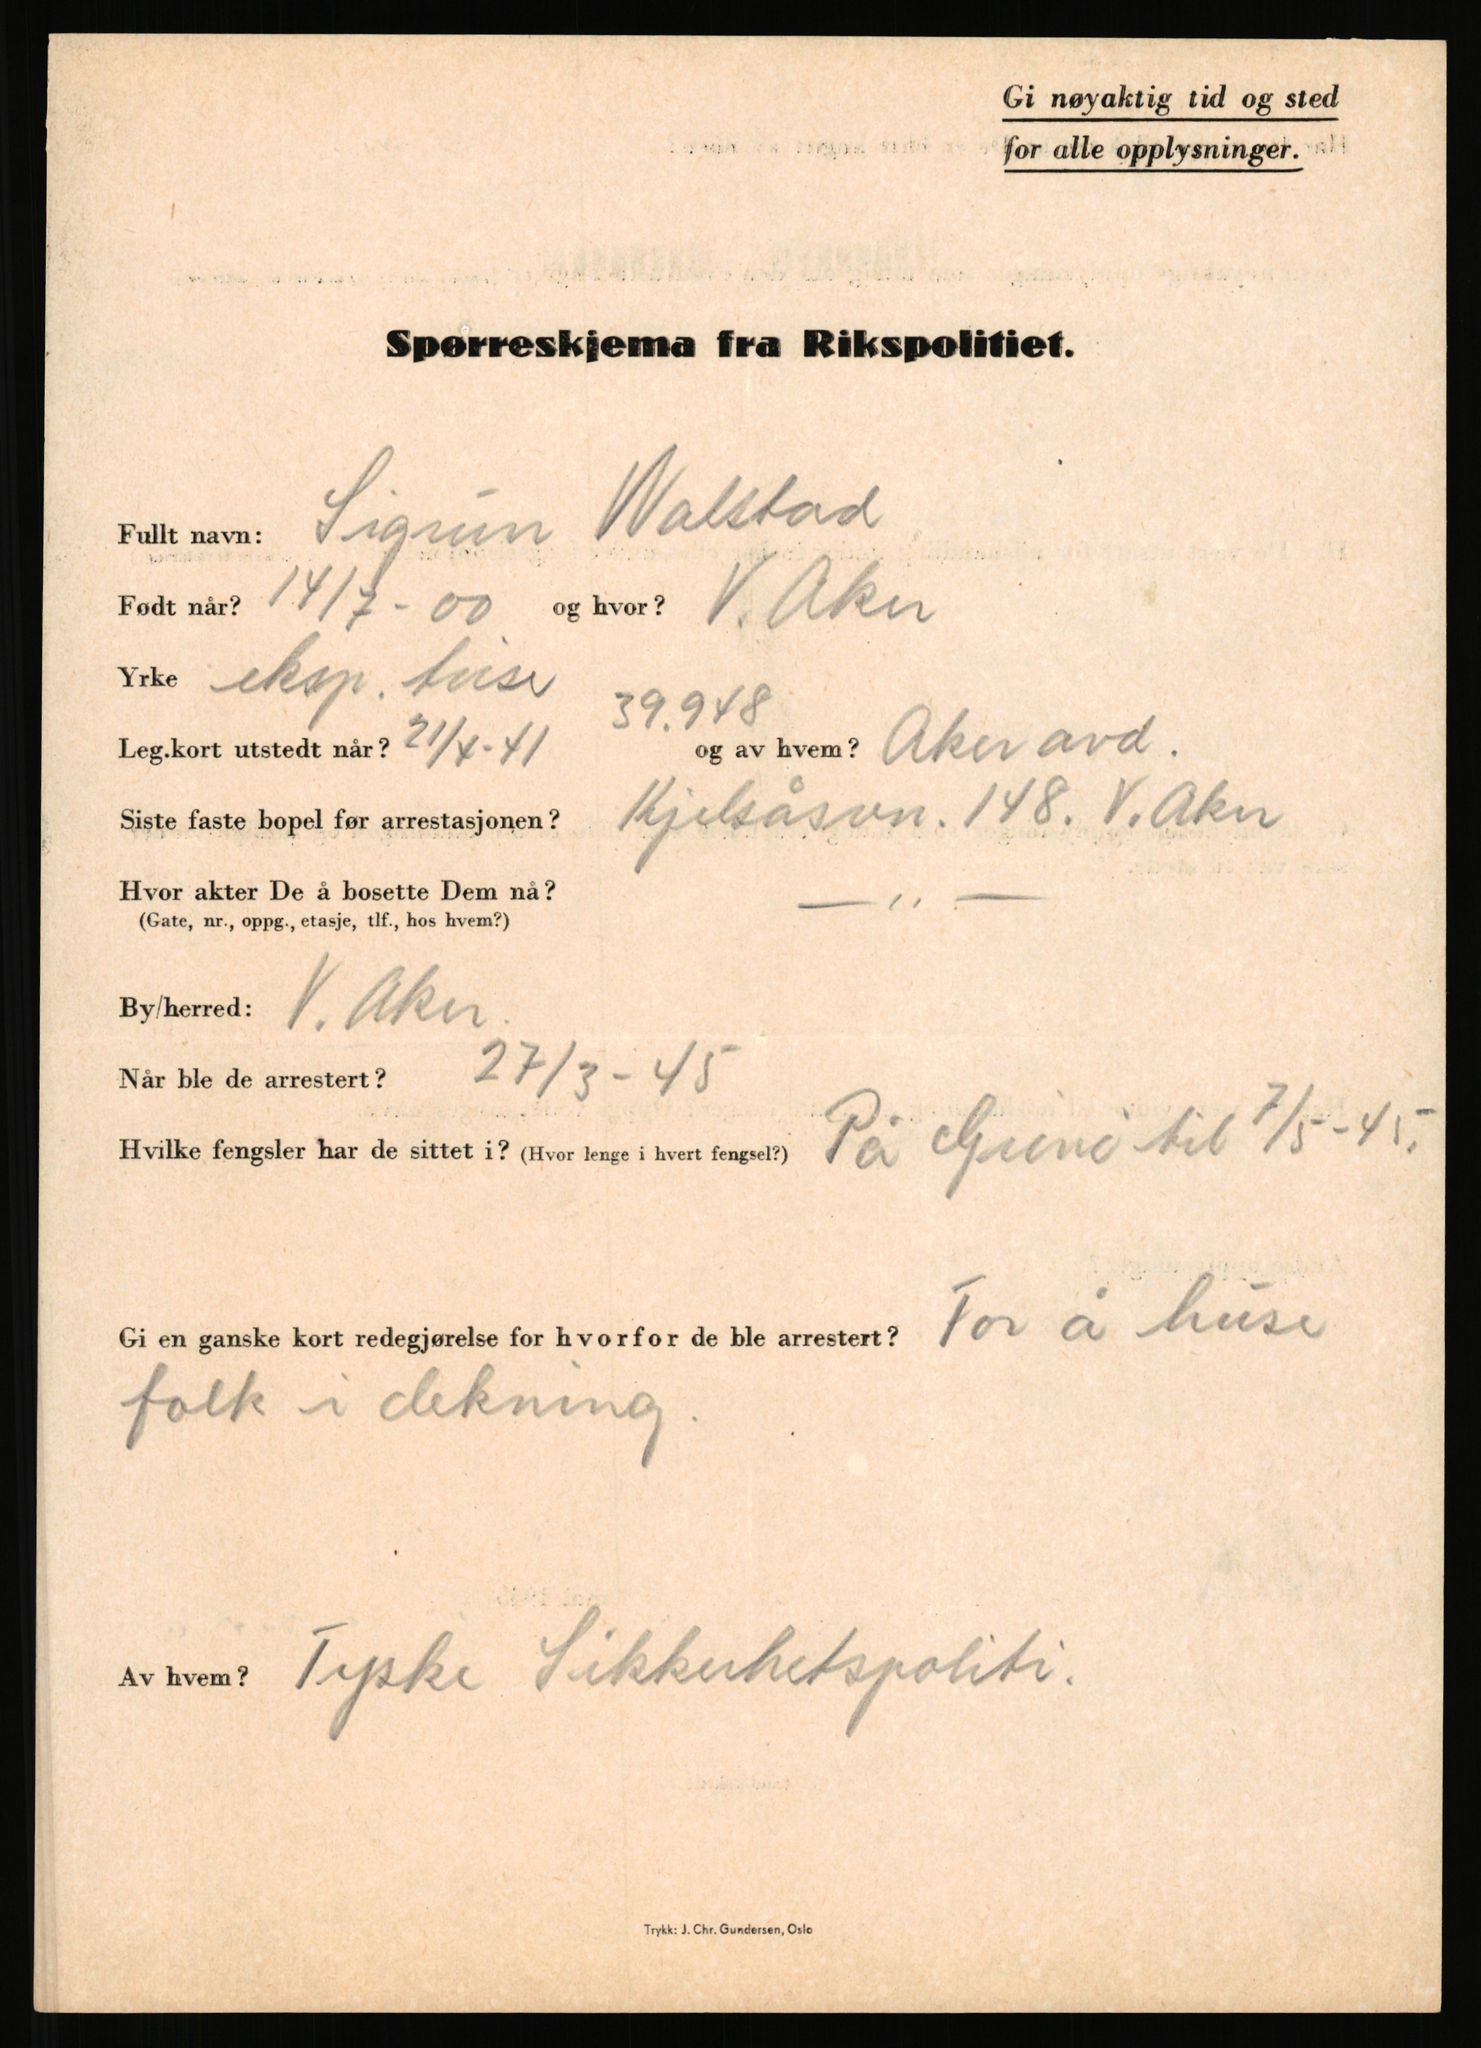 Gi nøyaktig tid og sted
for alle opplysninger.
Spørreskjema fra Rikspolitiet.
Fullt navn: Sigrun Walstad
Født når? 14/7-00 og hvor? V. Aker
Yrke eksp. trise
39.948
Leg.kort utstedt når? 21/4-41 og av hvem? Aker avd.
Siste faste bopel før arrestasjonen? Kjelsåsvn. 148. V. Aker
Hvor akter De å bosette Dem nå? — ,, —
(Gate, nr., oppg., etasje, tlf., hos hvem?)
By/herred: V. Aker.
Når ble de arrestert? 27/3-45
Hvilke fengsler har de sittet i? (Hvor lenge i hvert fengsel?) På Grini til 7/5-45.
Gi en ganske kort redegjørelse for hvorfor de ble arrestert? For å huse
folk i dekning.
Av hvem? Tyske Sikkerhetspoliti.
Trykk: J. Chr. Gundersen, Oslo